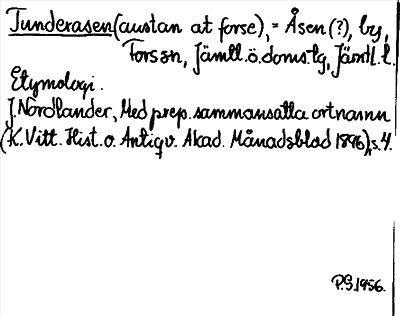 Tunderasen (austan at forse), = Åsen (?), by,
Forssn, Jämtl. ö. doms-tg, Jämtl. l.
Etymologi.
J. Nordlander, Med prep. sammansatta ortnamn
(K. Vitt. Hist. o. Antiqv. Akad. Månadsblad 1896), s. 4.
P.G. 1956.